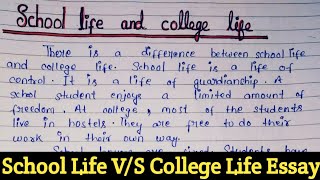 School life and college life
There is a difference between school life
and college life. School life is a life of
control. It is a life of guardianship. A
school student enjoys a limited amount of
freedom. At college, most of the students
live in hostels. They are free to do their
work in their own way.
School Life V/S College Life Essay